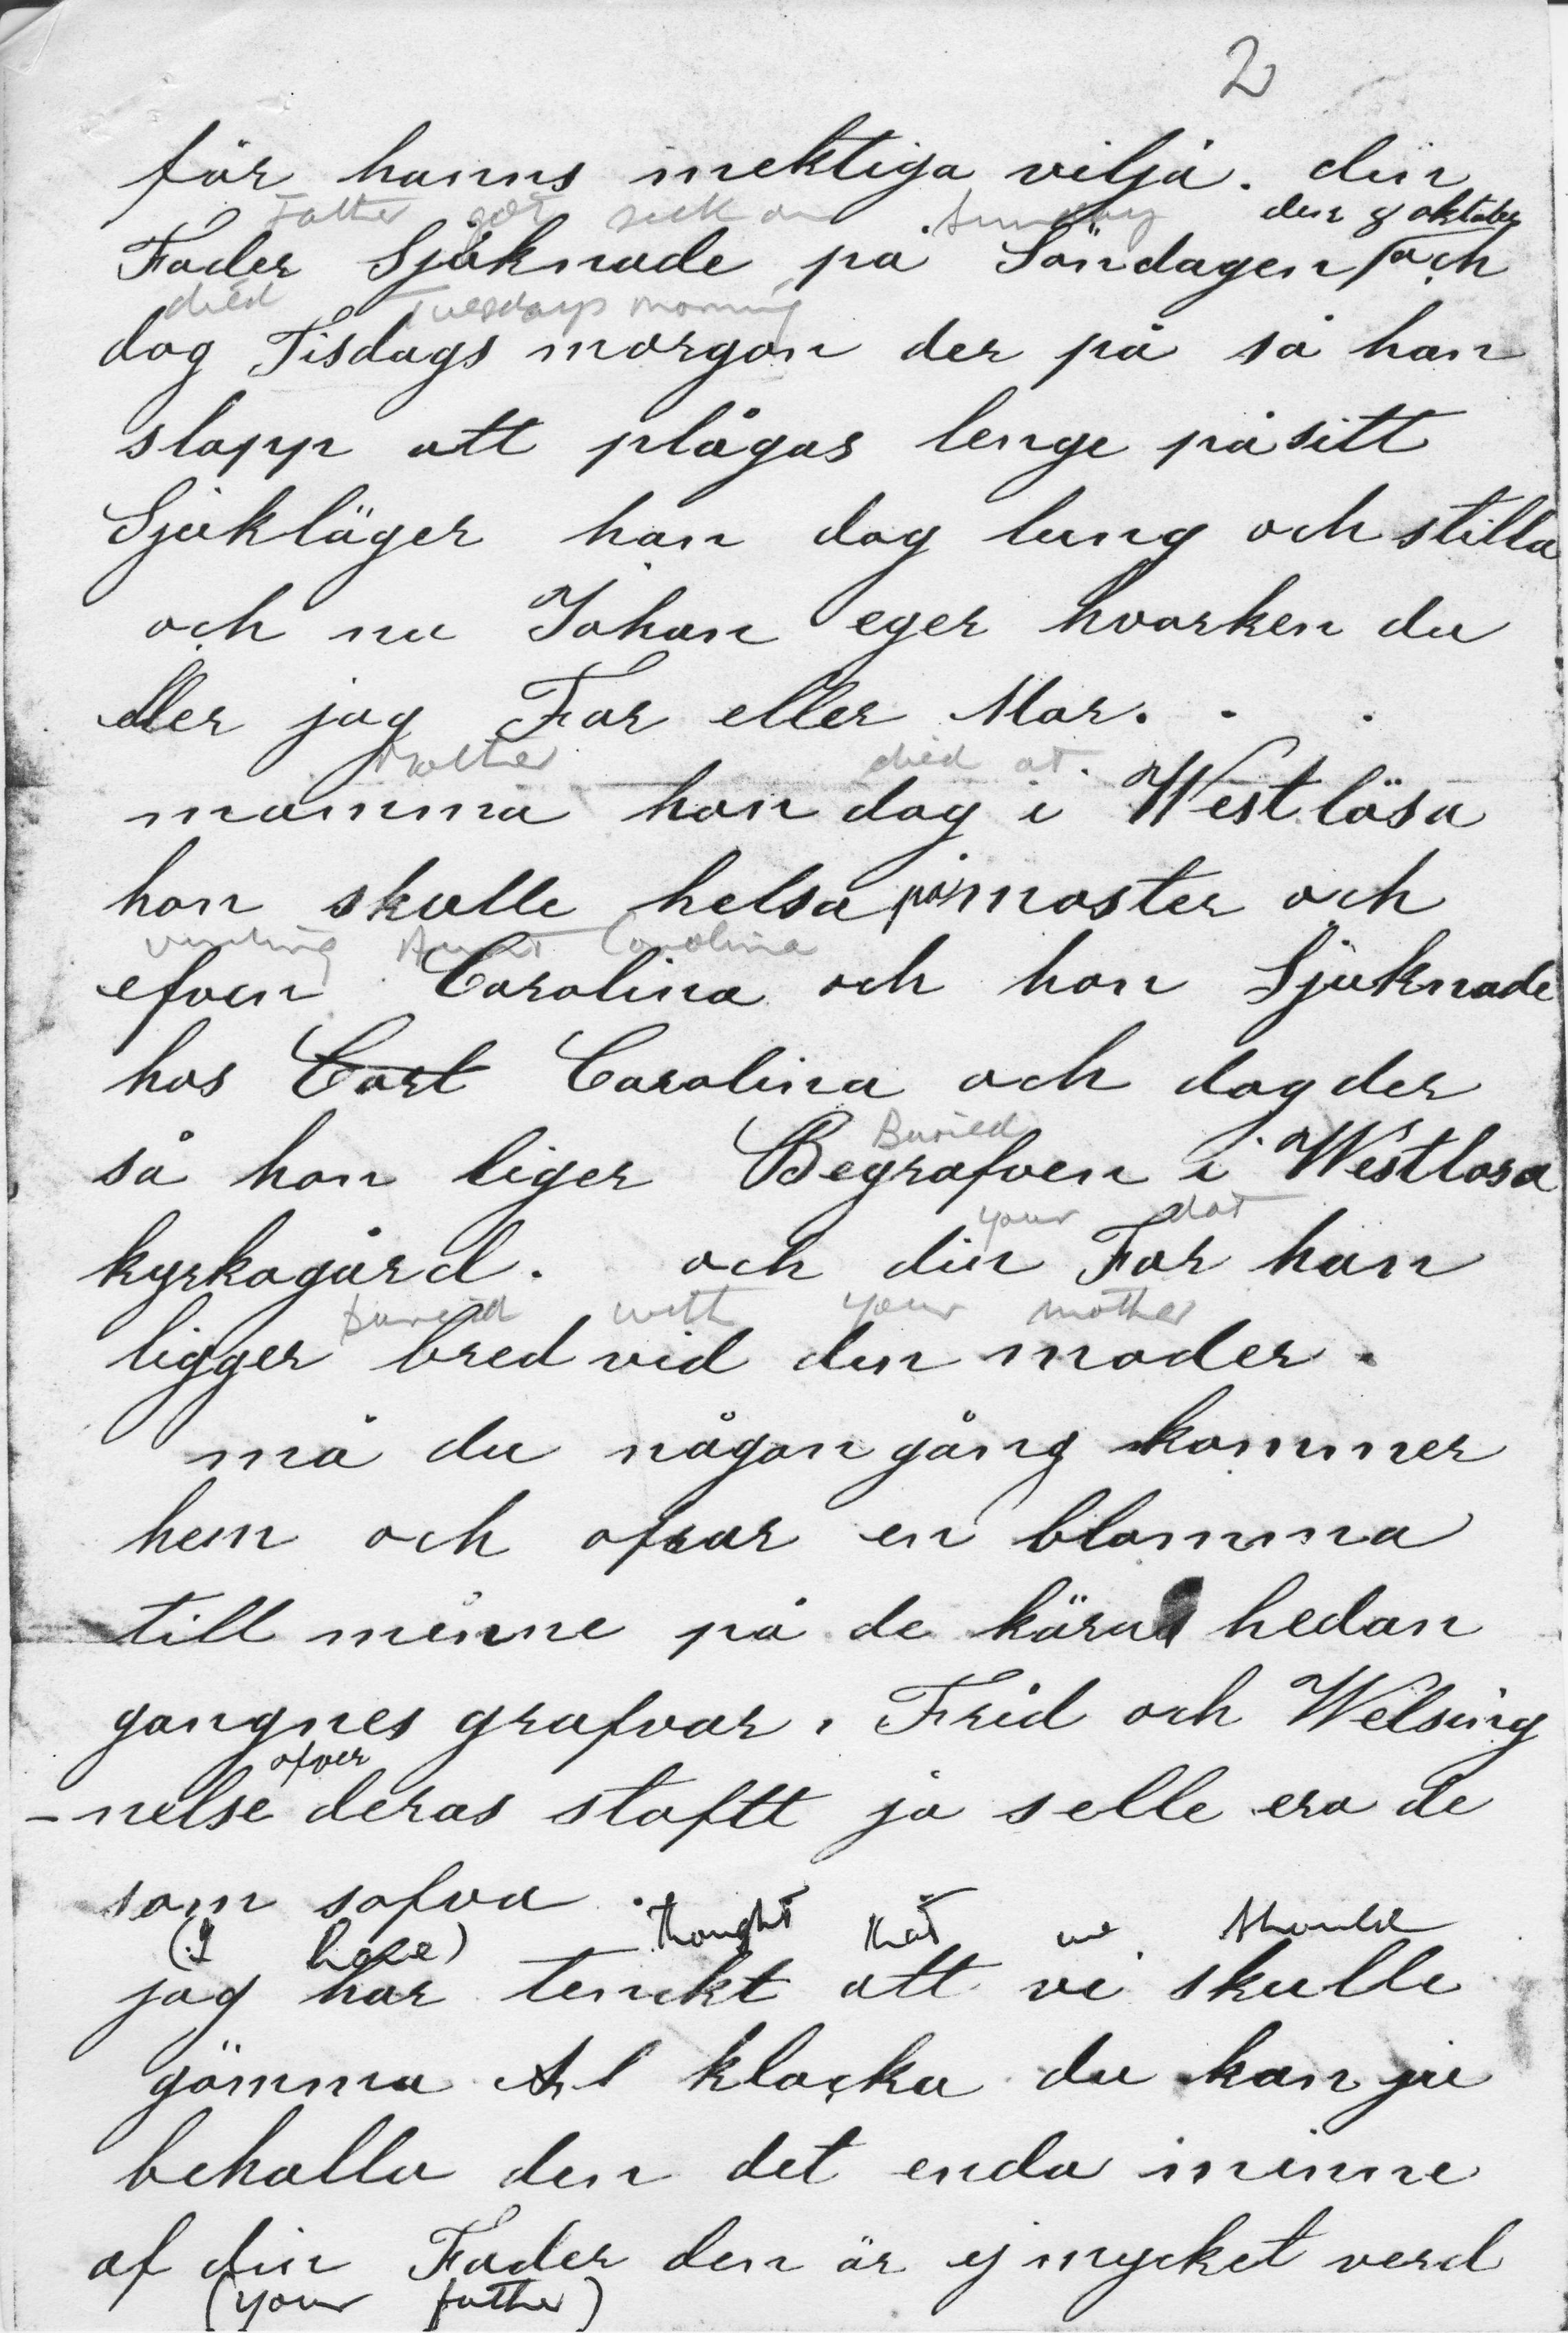 2
för hanns mektiga vilja. din
Father got sick on Sunday den 8 oktober
Fader Sjuknade på Söndagen och
died Tuesdays morning
dog Tisdags morgon der på så han
slapp att plågas lenge på sitt
Sjukläger han dog lung och stilla
och nu Johan eger hvarken du
eller jag Far eller Mor. . .
Mother died at
mamma hon dog i Westlösa
hon skulle helsa på moster och
visiting Aunt Carolina
efven Carolina och hon Sjuknade
hos Carl Carolina och dog der
Buried
så hon liger Begrafven i Westlosa
your dat
kyrkogård. och din Far han
buried with your mother
ligger bred vid den moder.
må du någon gång kommer
hem och ofrar en blomma
till minne på de kära hedan
gangnes grafvar. Frid och Welsing
ofver
-nelse deras stoftt ja selle era de
som sofva.
(I have) thought that we should
jag har tenckt att vi skulle
gömma klocka du kan ju
behalla den det enda minne
af din Fader den är ej mycket verd
(your father)